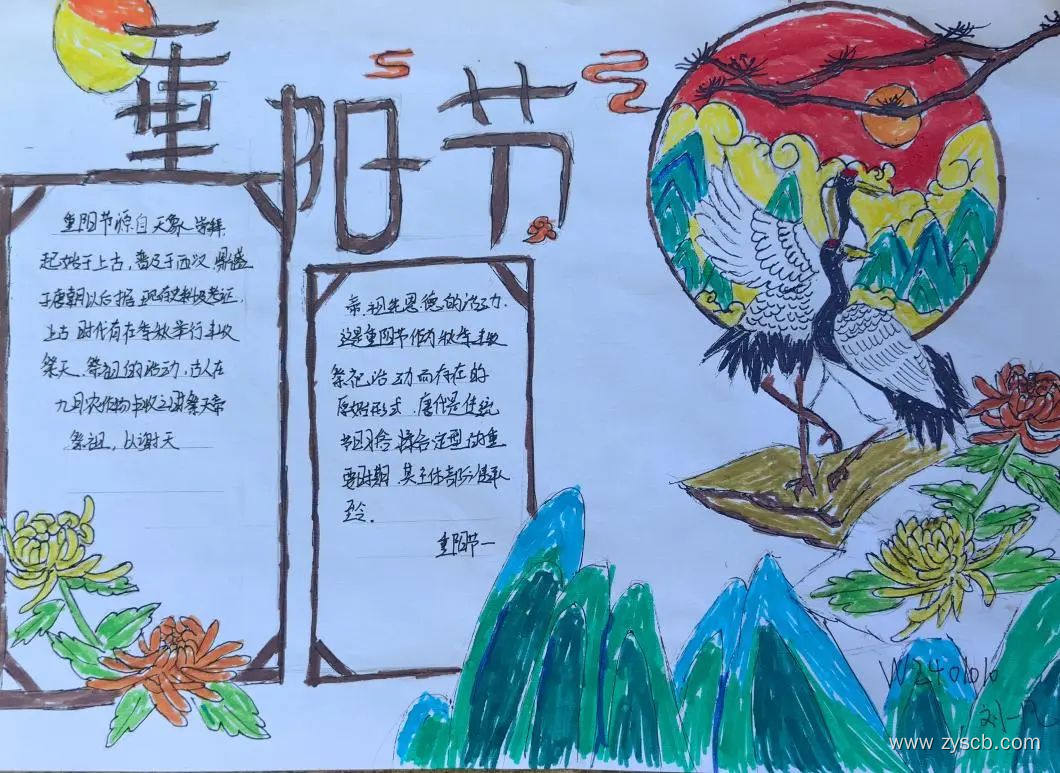 重阳节
重阳节源自天象崇拜,
起始于上古,普及于西汉,鼎盛
于唐朝以后据现存史料及考证,
上古时代有在季秋举行丰收
祭天、祭祖的活动,古人在
九月农作物丰收之时祭天帝
祭祖,以谢天
帝祖先恩德的活动.
这是重阳节作为秋季丰收
祭祀活动而存在的
原始形式.唐代是传统
节日习俗揉合定型的重
要时期,其主体部分传承
至今。
重阳节一
W240610
刘一凡
www.zyscb.com